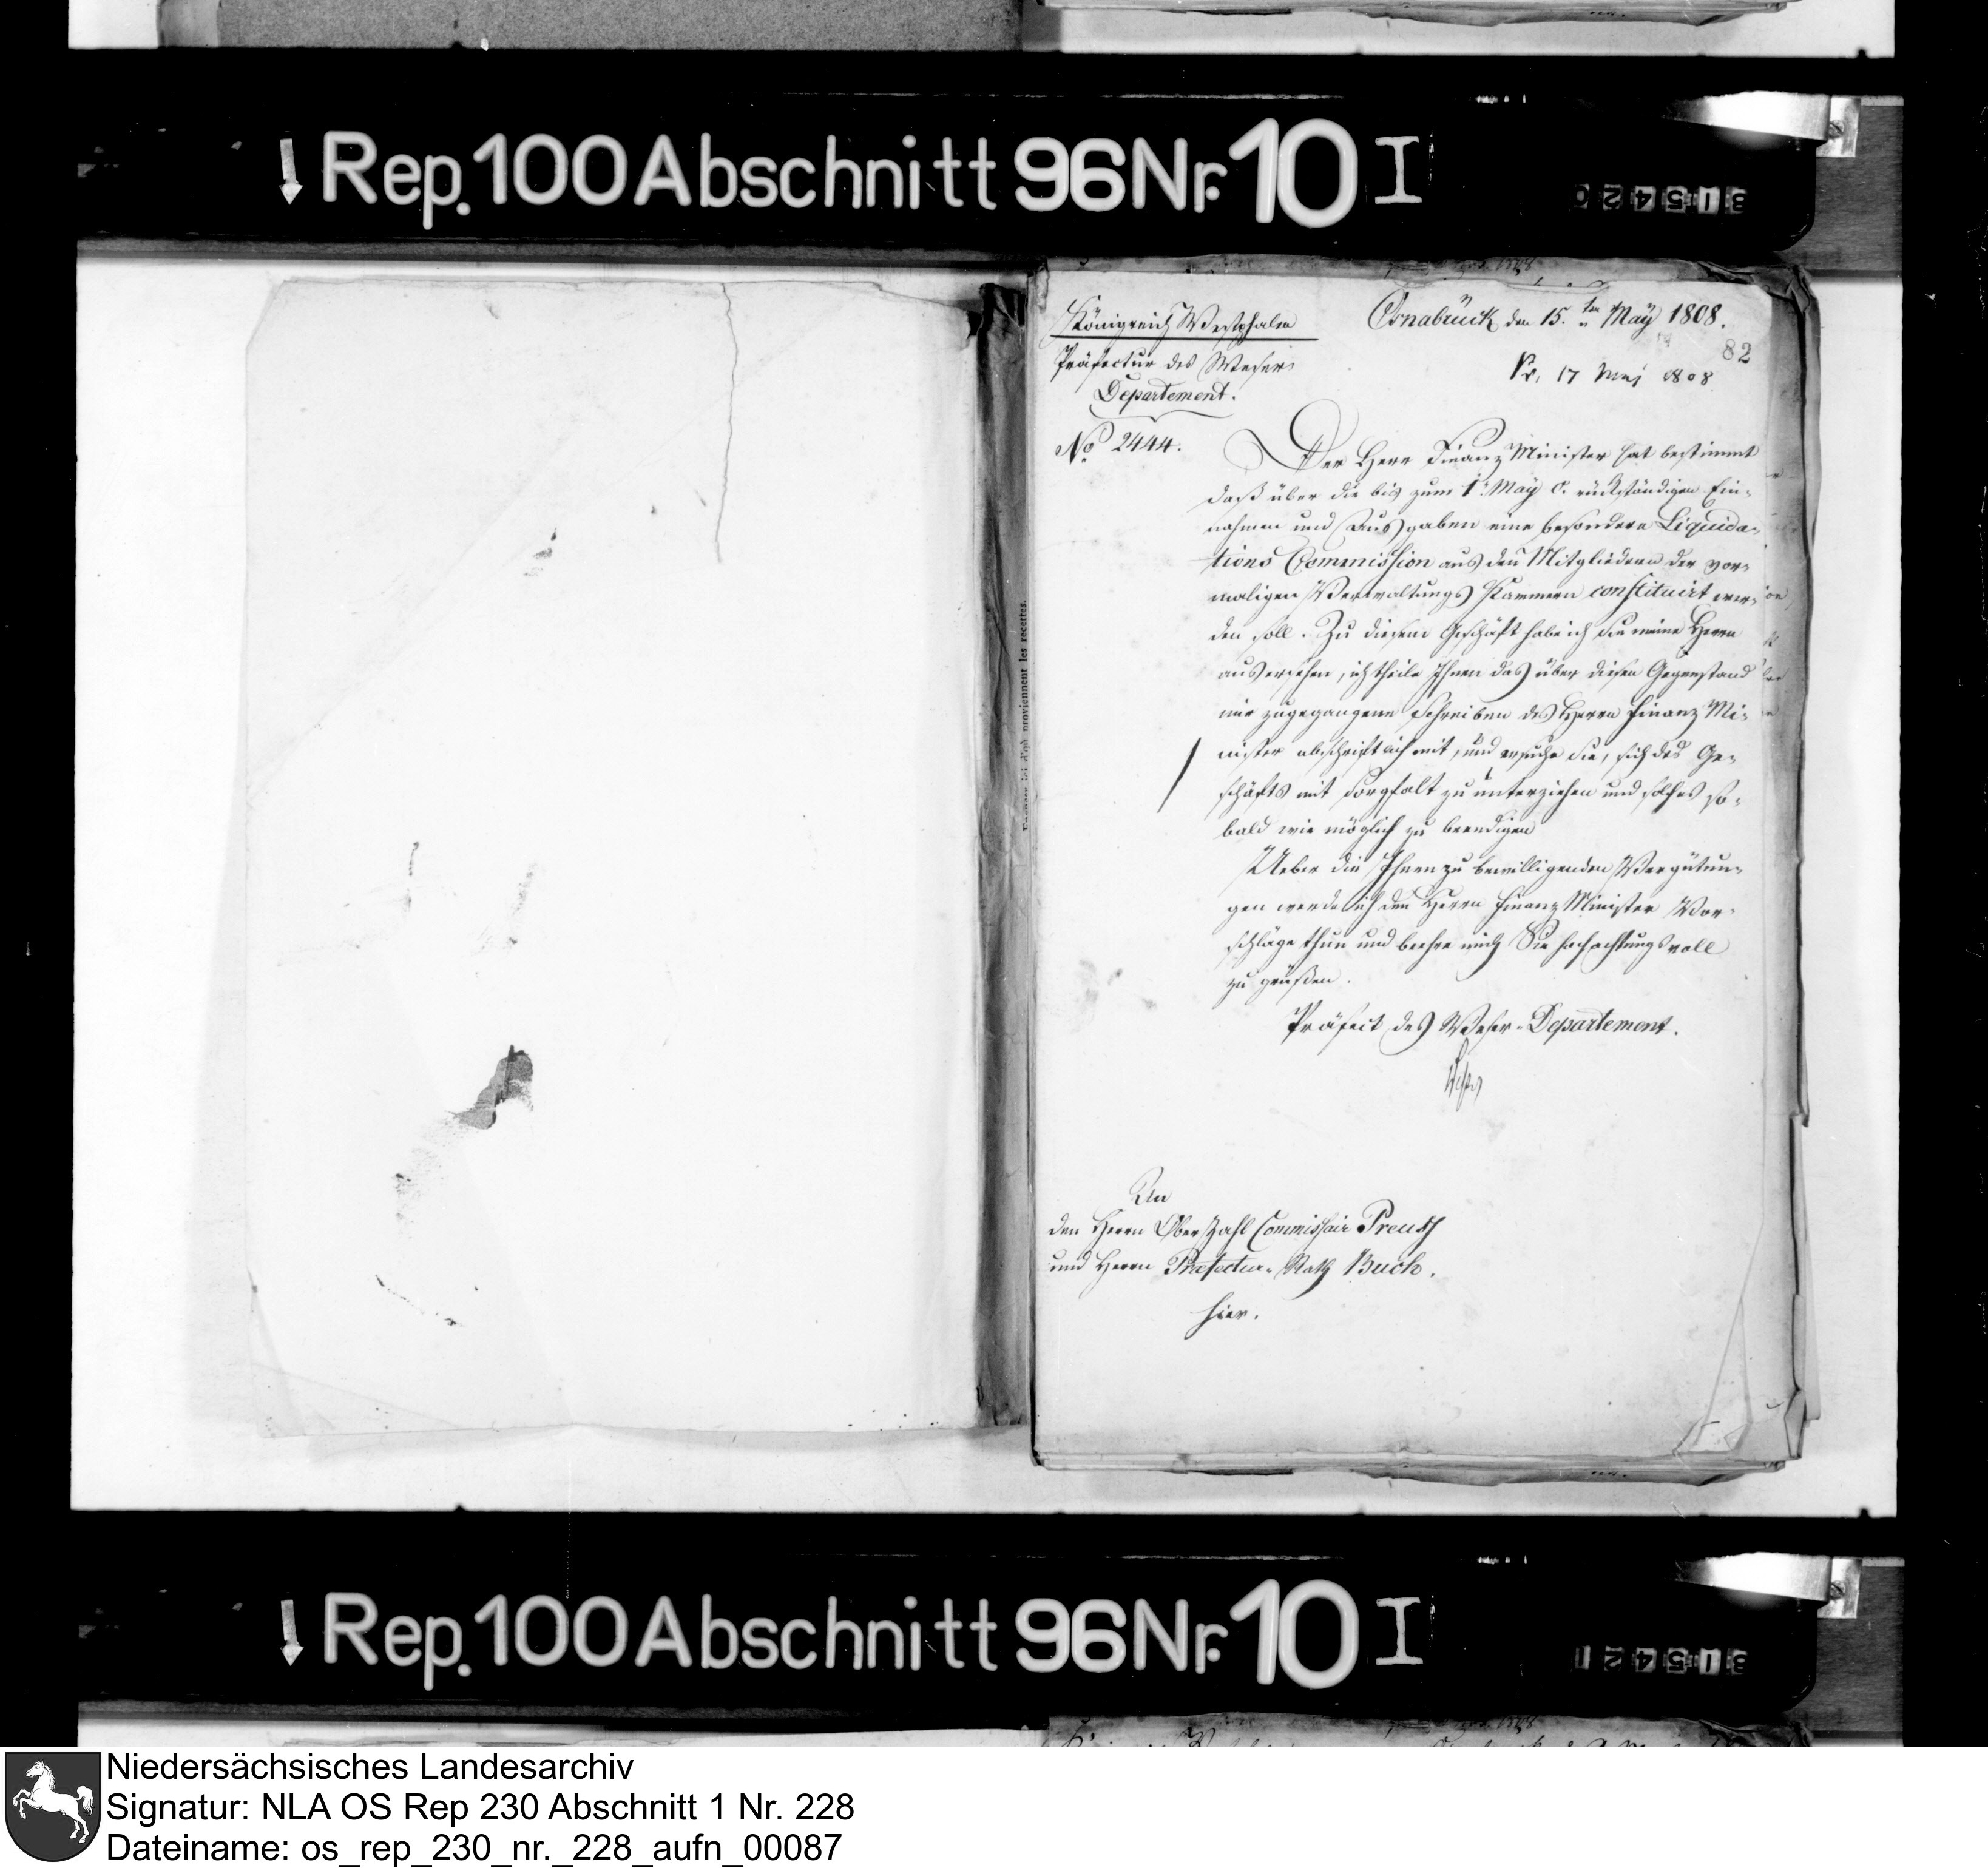 Rep. 100 Abschnitt 96 Nr. 10 I
315420
Königreich Westphalen
Osnabrück den 15.ten May 1808.
82
Präfectur des Weser
Departement.
Pr. 17 Mai 1808
No 2444.
Der Herr Finanz Minister hat bestimmt
daß über die bis zum 1. May c. rückständigen Ein-
nahmen und Ausgaben eine besondere Liquida-
tions Commission aus den Mitgliedern der vor-
maligen Verwaltungs Kammern constituirt wer-
den soll. Zu diesem Geschäft habe ich Sie meine Herrn
ausersehen, ich theile Ihnen das über diesen Gegenstand
mir zugegangene Schreiben des Herrn Finanz Mi-
nister abschriftlich mit, und ersuche Sie, sich des Ge-
schäfts mit Sorgfalt zu unterziehen und solches so-
bald wie möglich zu beendigen
Ueber die Ihnen zu bewilligenden Vergütun-
gen werde ich dem Herrn Finanz Minister Vor-
schläge thun und beehre mich Sie hochachtungsvoll
zu grüßen.
Präfect des Weser-Departement.
An
den Herrn Ober Zahl Commissair Preuss
und Herrn Praefectur-Rath Buch.
hier.
Rep. 100 Abschnitt 96 Nr. 10 I
315421
Niedersächsisches Landesarchiv
Signatur: NLA OS Rep 230 Abschnitt 1 Nr. 228
Dateiname: os_rep_230_nr._228_aufn_00087